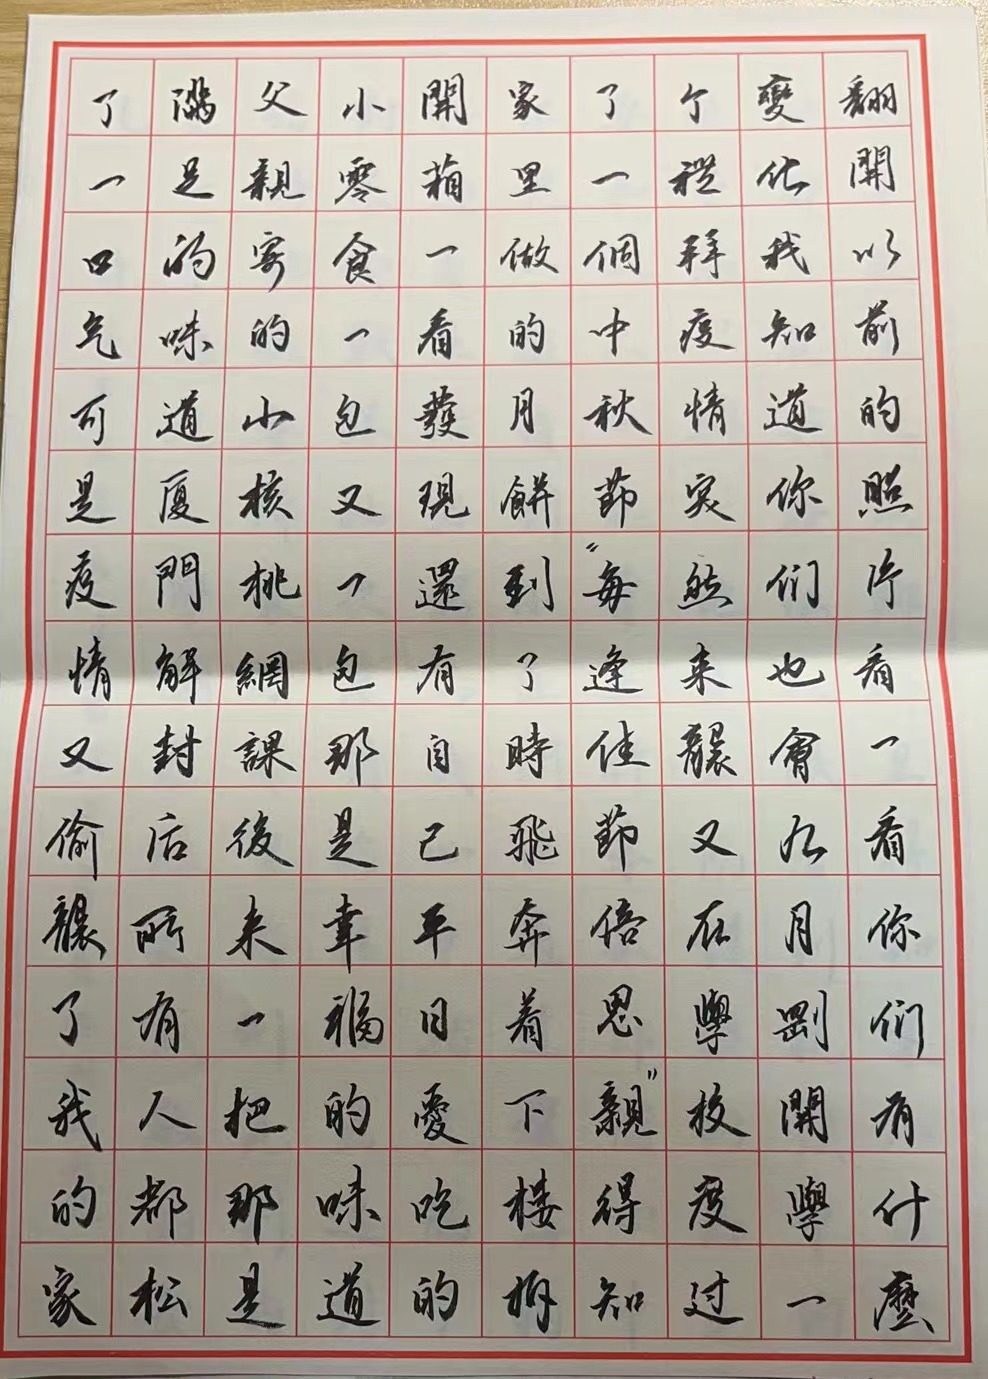 翻開以前的照片看一看你们有什麼
變化我知道你们也會九月剛開學一
个禮拜疫情突然来襲又在學校度过
了一個中秋節"每逢佳節倍思親"得知
家里做的月餅到了時飛奔着下楼拆
開箱一看發現還有自己平日愛吃的
小零食一包又一包那是幸福的味道
父親寄的小核桃網課後来一把那是
滿足的味道厦門解封后所有人都松
了一口气可是疫情又偷襲了我的家